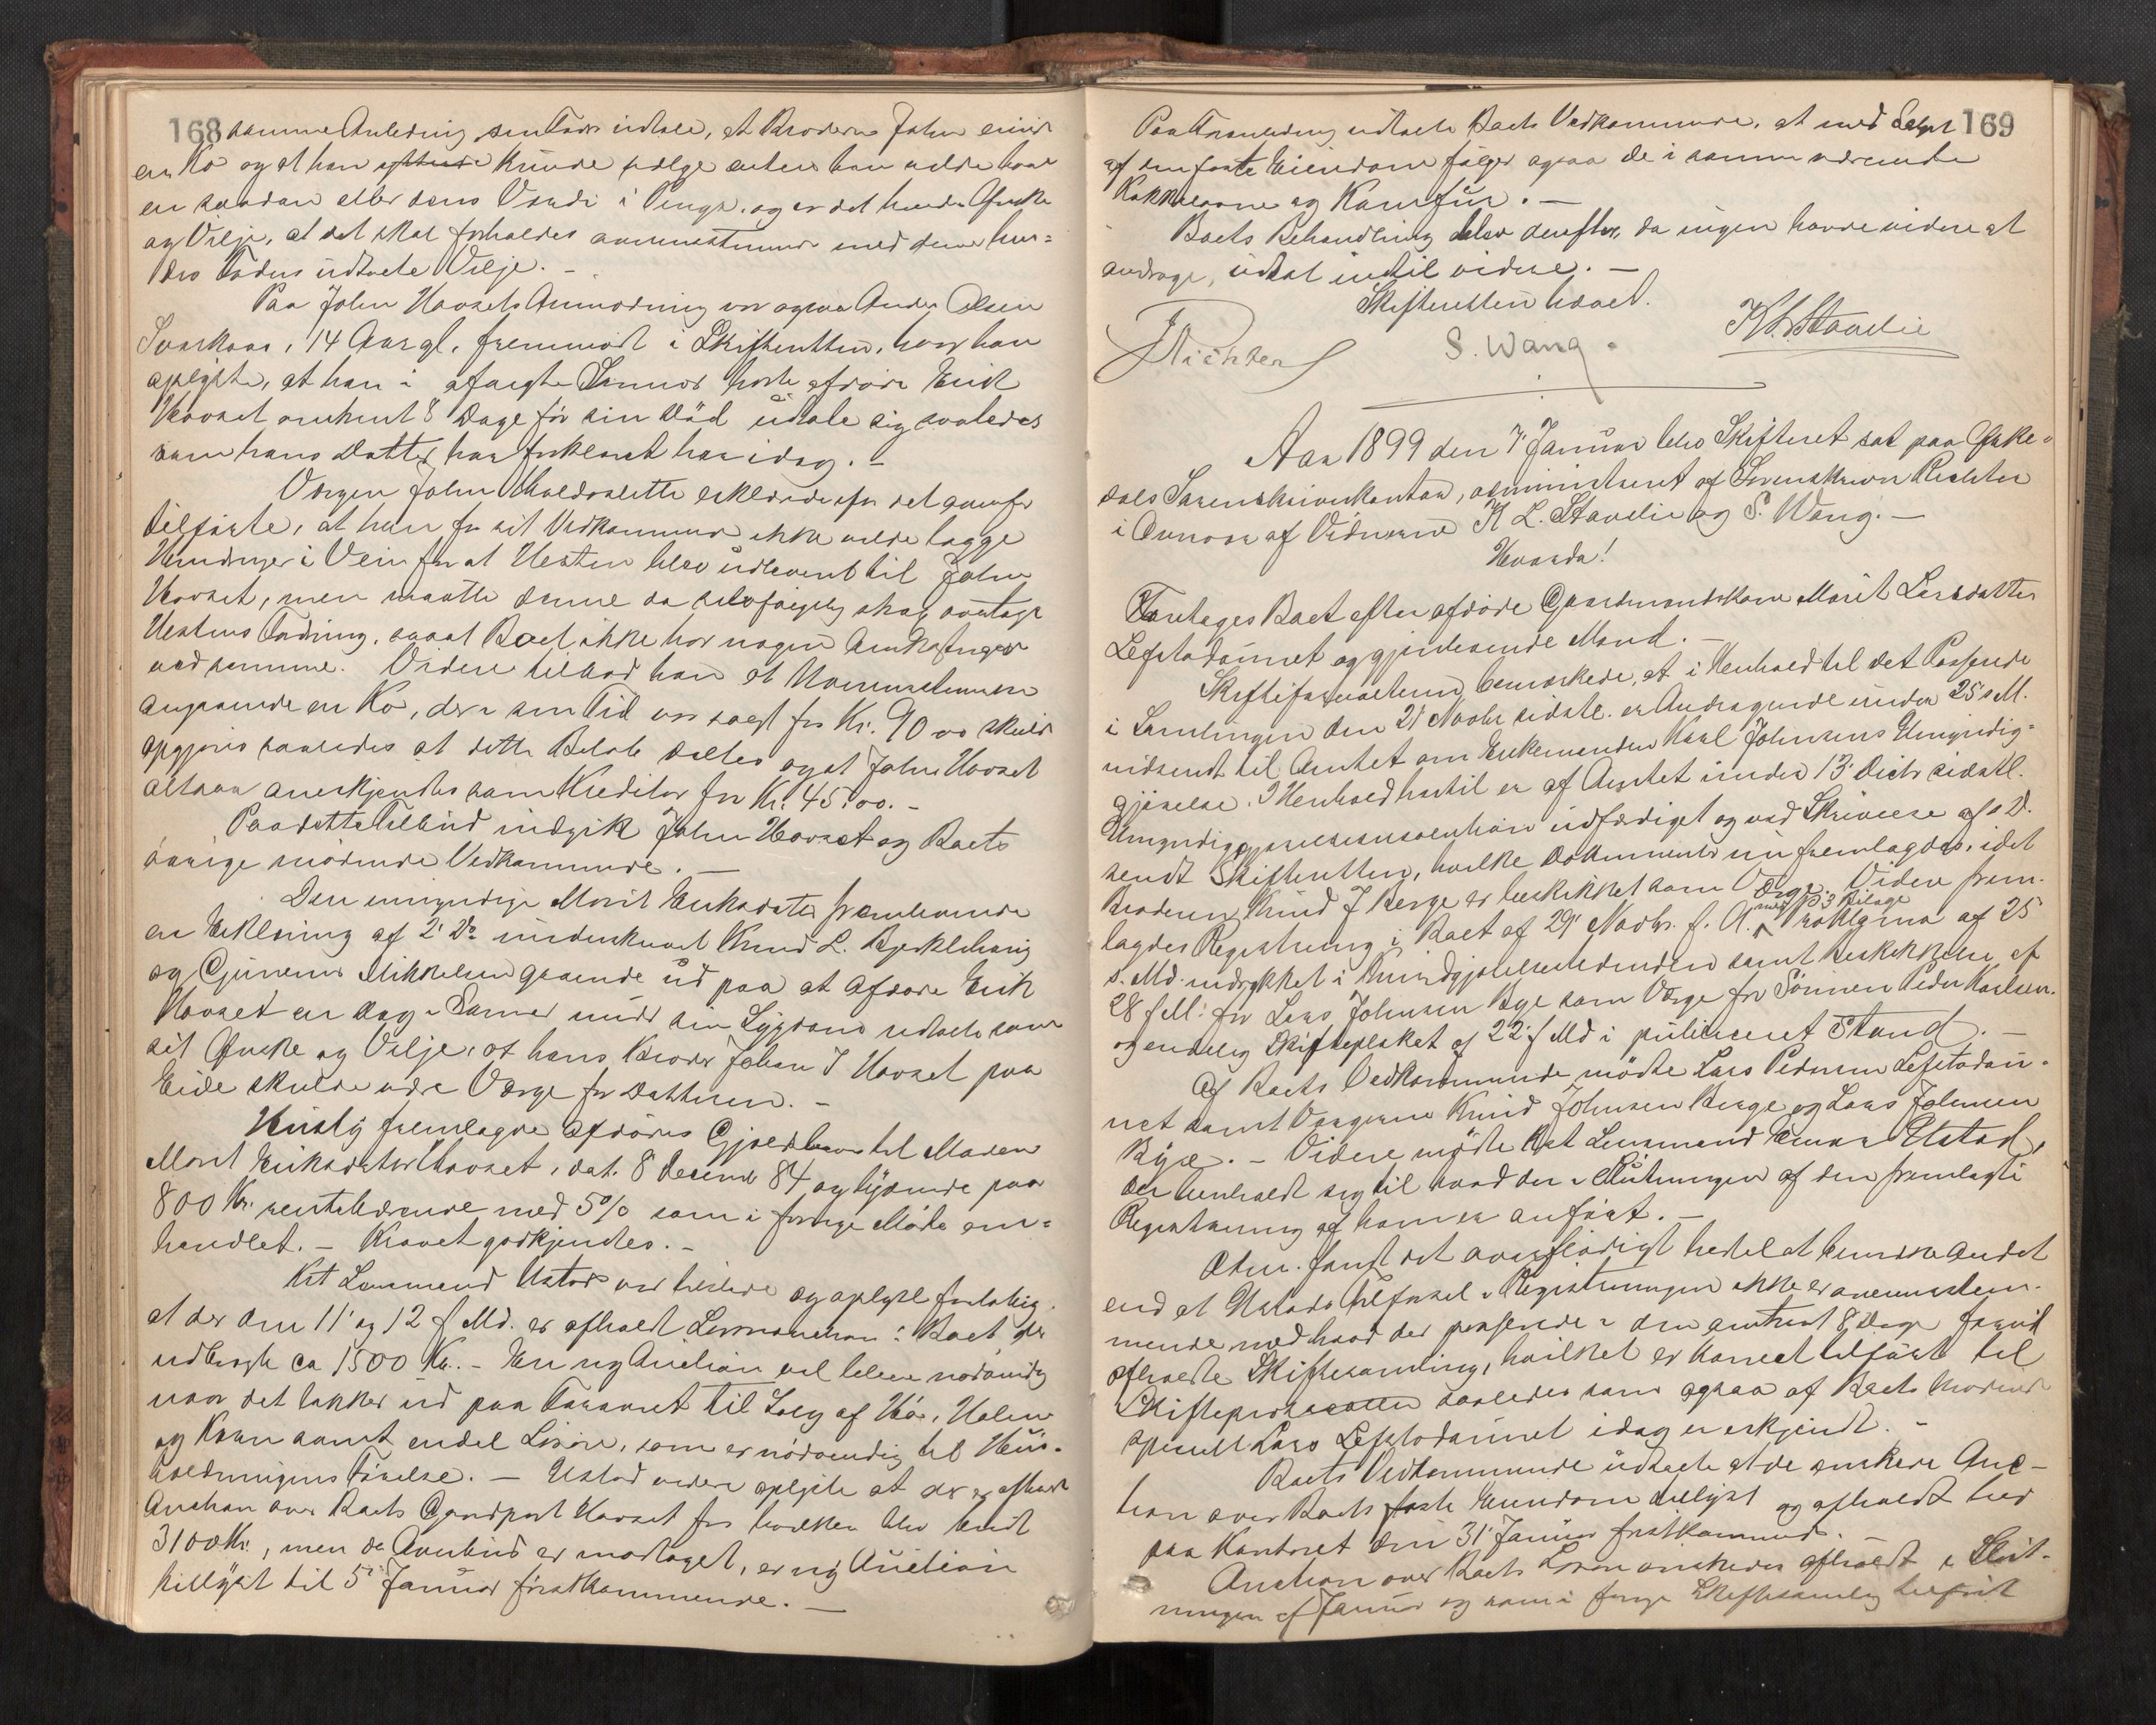 168 samme Anledning sin Fader udtale, at Broderen John eiede
en Ko og at han kunde vælge enten han vilde have
en saadan eller dens Værdi i Penge, og er det hendes Ønske
og Vilje, at det skal forholdes overensstemmende med denne hen-
des Faders udtalte Vilje. –
Paa John Hovsets Anmodning var ogsaa Anders Olsen
14 Aar gl., fremmødt i Skifteretten, hvor han
oplyste, at han i afvigte Sommer hørte afdøde Erik
Hovset omtrent 8 Dage før sin Død udtale sig saaledes
som hans Datter har forklaret her idag. –
Værgen John erklærede efter det ovenfor
tilførte, at han for sit Vedkommende ikke vilde lægge
Hindringer i Veien for at Hesten blev udleveret til John
Hovset, men maatte denne da selvfølgelig strax overtage
Hestens Fodring, saaat Boet ikke har nogen Omkostninger
ved samme. Videre tilbød han at Uoverensstemmelsen
angaaende en Ko, der i sin Tid var solgt for Kr. 90.00 skulde
opgjøres saaledes at dette Beløb deltes og at John Hovset
altsaa anerkjendtes som Kreditor for Kr. 45.00. –
Paa dette Tilbud indgik John Hovset og Boets
øvrige mødende Vedkommende. –
Den umyndige Marit Eriksdatter fremleverede
en Erklæring af 2' Ds. underskrevet Knud L.
og Gunerius Mikkelsen gaaende ud paa at afdøde Erik
Hovset en Dag i Sommer under sin Sygdom udtalte som
sit Ønske og Vilje, at hans Broder Johan J Hovset paa
Eide skulde være Værge for Datteren. –
fremlagde afdødes Gjældsbrev til Moren
Marit Eriksdatter Hovset, dat. 8 Decembr 84 og lydende paa
800 Kr. rentebærende med 5% som i forrige Møde om-
handlet. – Kravet godkjendtes. –
Kst Lensmand Ustad var tilstede og oplyste foreløbig
at der den 11' og 12 f. Md. er afholdt Løsøreauction i Boet der
udbragte ca 1500 Kr. – En ny Auction vil blive nødvendig
naar det lakker ud paa Foraaret til Salg af Hø, Halm
og Korn samt endel Løsøre, som er nødvendig til Hus-
holdningens Førelse. – Ustad videre oplyste at der er afholdt
Auction over Boets Gaardpart Hovset for hvilken blev budt
3100 Kr., men da Overbud er modtaget, er ny Auction
tillyst til 5' Januar førstkommende. –
Paa Foranledning udtalte Boets Vedkommende, at med Salget 169
af den faste Eiendom følger ogsaa de i samme værende
Kakkelovne og Komfur. –
Boets Behandling blev derefter, da ingen havde videre at
andrage, udsat indtil videre. –
Skifteretten hævet.
Richter S. Wang. K L Stavlie
Aar 1899 den 7' Januar blev Skifteret sat paa Orke-
dals Sorenskriverkontor, administreret af Sorenskriver Richter
i Overvær af Vidnerne K L. Stavlie og S. Wang. –
Hvorda!
Foretages Boet efter afdøde Gaardmandskone Marit Larsdatter
Lefstadaunet og gjenlevende Mand. –
Skifteforvalteren bemærkede, at i Henhold til det Passerede
i Samlingen den 21' Novbr sidstl. er Andragende under 25 s. M.
indsendt til Amtet om Enkemanden Karl Johnsens Umyndig-
gjørelse. I Henhold hertil er af Amtet under 13' Decbr sidstl.
udfærdiget og ved Skrivelse af s. D.
sendt Skifteretten, hvilke Dokumenter nu fremlagdes, idet
Broderen Knud J Berge er beskikket som Værge. Videre frem-
lagdes Registrering i Boet af 29' Novbr. f. A. med 3 Bilage Proklama af 25
s. Md. indrykket i Kundgjørelsestidenden samt Beskikkelse af
28 f. M. for Lars Johnsen Bye som Værge for Sønnen Peder Karlsen.
og endelig Skifteplakat af 22' f. Md i publiceret Stand. –
Af Boets Vedkommende mødte Lars Pedersen Lefstadau-
net samt Værgerne Knud Johnsen Berge og Lars Johnsen
Bye. – Videre mødte Kst Lensmand Einar Ustad,
der henholdt sig til hvad der i Slutningen af den fremlagte
Registrering af ham er anført. –
Adm. fandt det overflødigt hertil at bemærke andet
end at Ustads Tilførsel i Registreringen ikke er overensstem-
mende med hvad der passerede i den omtrent 8 Dage forud
afholdte Skiftesamling, hvilket er korrect tilført til
Skifteprotocollen saaledes som ogsaa af Boets mødende
specielt Lars Lefstadaunet idag er erkjendt. –
Boets Vedkommende udtalte at de ønskede Auc-
tion over Boets faste Eiendom tillyst og afholdt her
paa Kontoret den 31' Januar førstkommende. –
Auction over Boets Løsøre ønskedes afholdt i Slut-
ningen af Januar og som i forrige Skiftesamling tilført